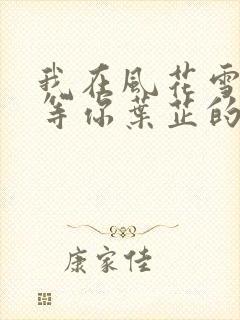 我在風花雪
等你葉芷的
康家佳